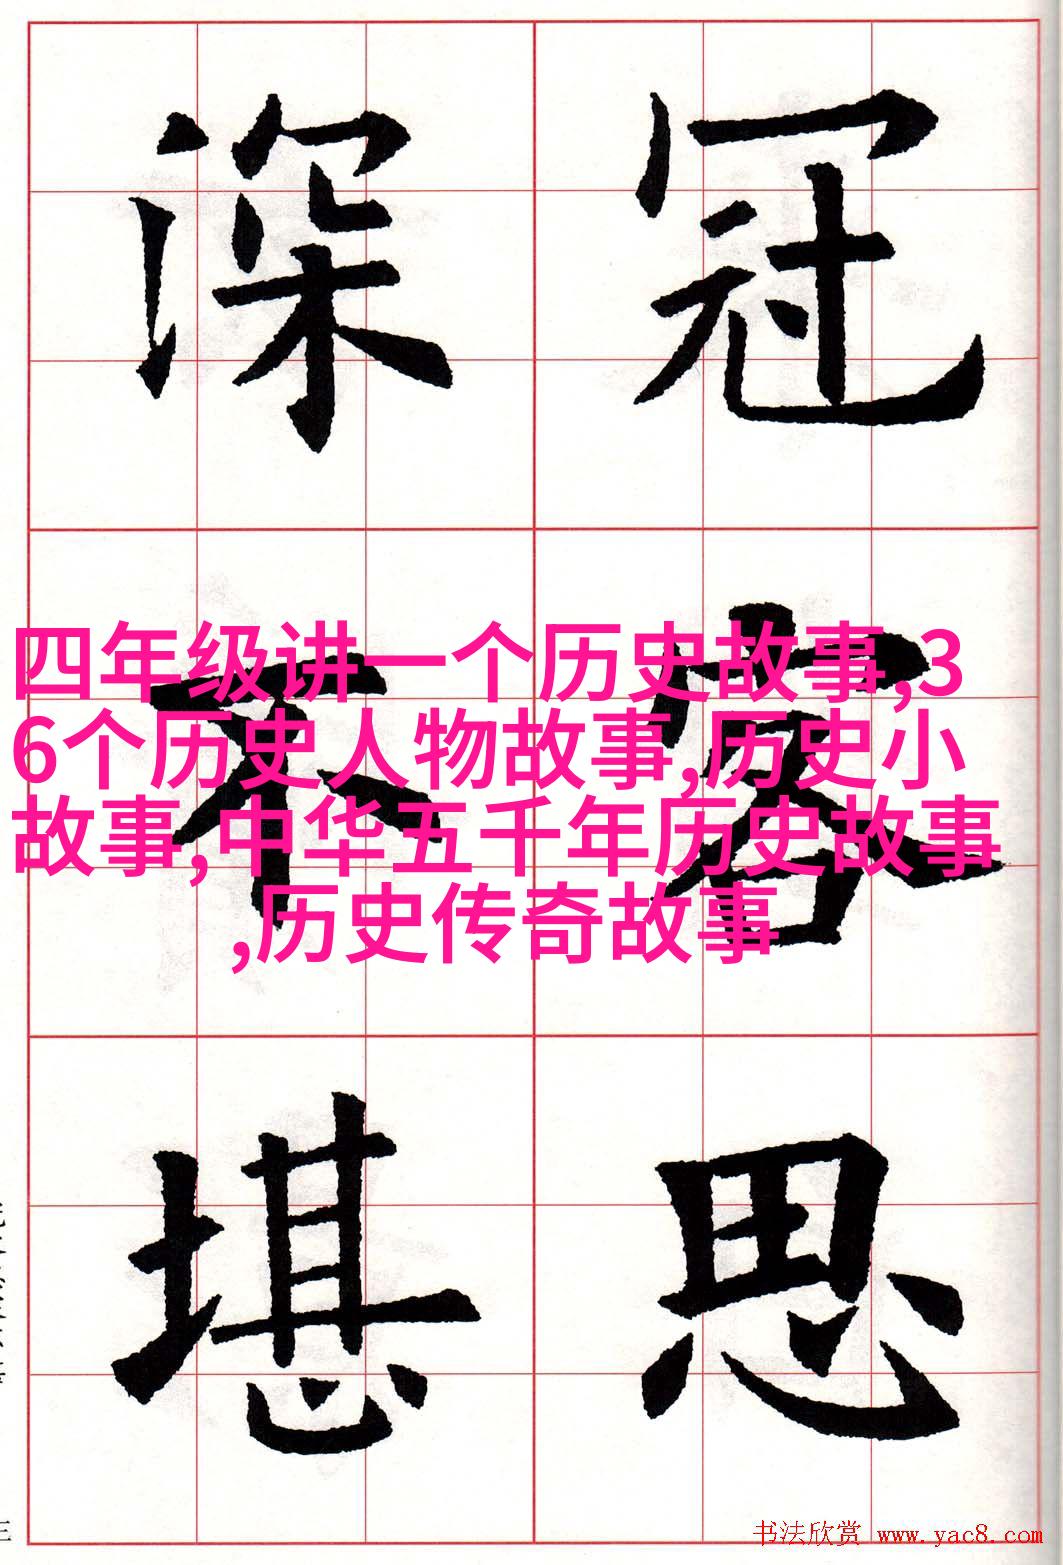 深 冠
四年级讲一个历史故事,3
6个历史人物故事,历史小
故事,中华五千年历史故事
,历史传奇故事
不 容
堪 思
书法欣赏 www.yac8.com